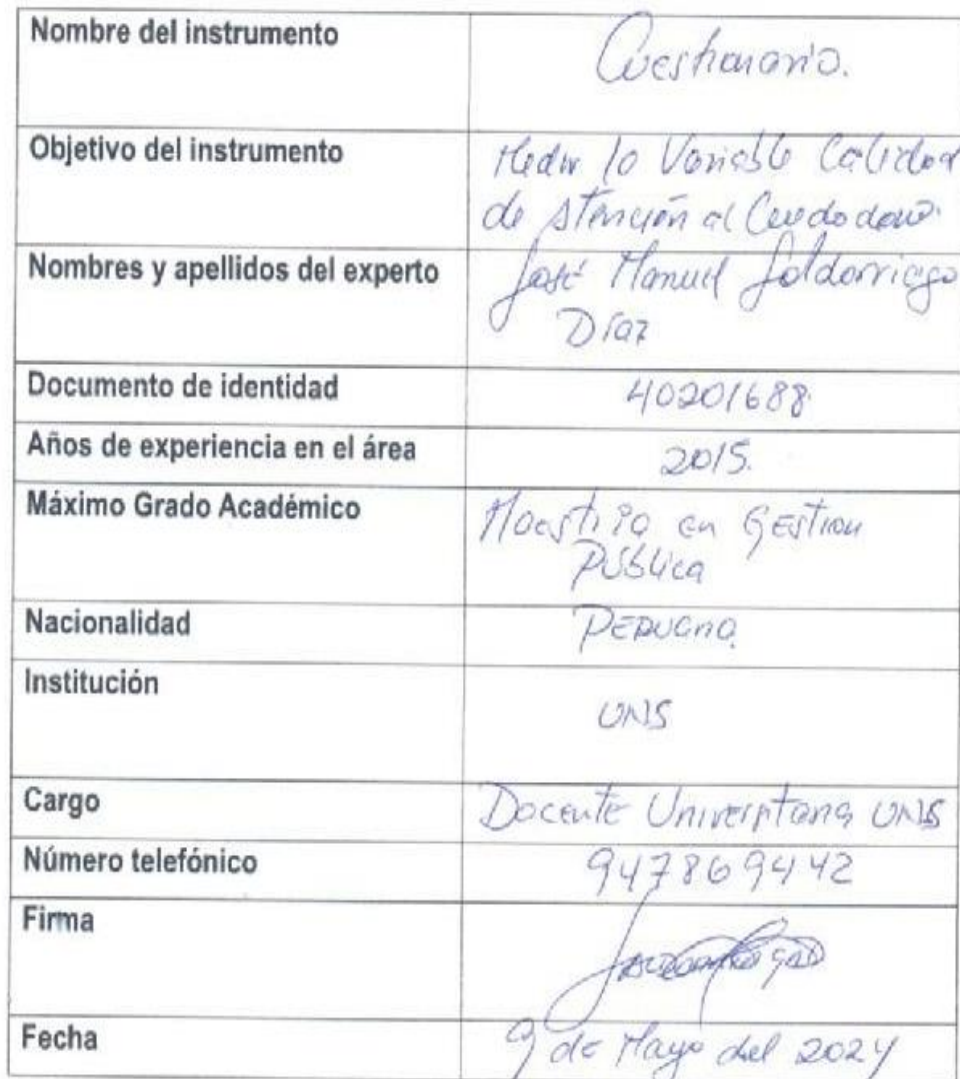 Nombre del instrumento
Cuestionario.
Objetivo del instrumento
Medir la Variable Calidad
de Atención al Ciudadano.
Nombres y apellidos del experto
José Manuel Saldarriaga
Díaz
Documento de identidad
40201688
Años de experiencia en el área
2015.
Máximo Grado Académico
Maestria en Gestion
Pública
Nacionalidad
Peruana
Institución
UNS
Cargo
Docente Universitaria UNS
Número telefónico
947869442
Firma
Fecha
9 de Mayo del 2024